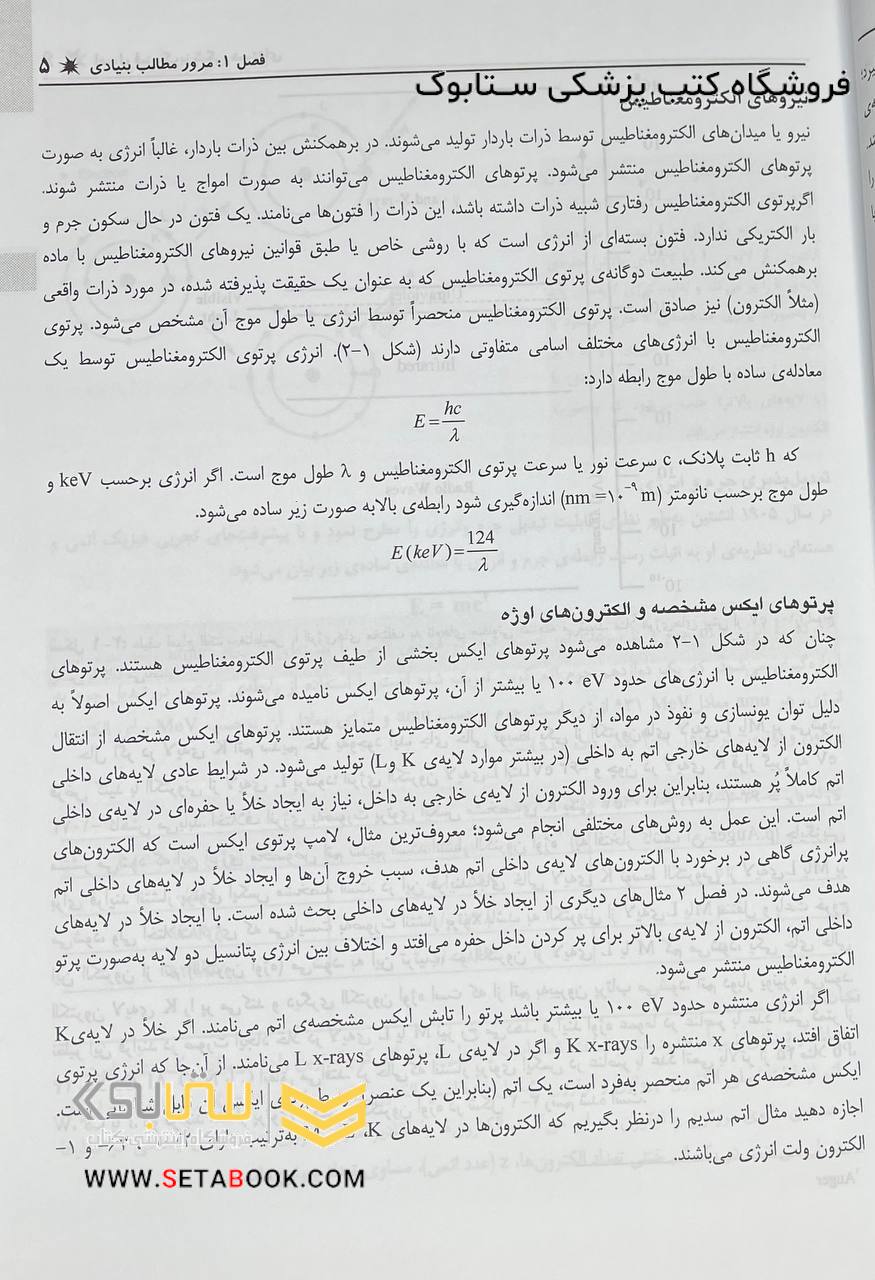 فصل ۱: مرور مطالب بنیادی ۵
فروشگاه کتب پزشکی ستابوک
نیروهای الکترومغناطیس
نیرو یا میدان‌های الکترومغناطیس توسط ذرات باردار تولید می‌شوند. در برهمکنش بین ذرات باردار، غالباً انرژی به صورت
پرتوهای الکترومغناطیس منتشر می‌شود. پرتوهای الکترومغناطیس می‌توانند به صورت امواج یا ذرات منتشر شوند.
اگرپرتوی الکترومغناطیس رفتاری شبیه ذرات داشته باشد، این ذرات را فتون‌ها می‌نامند. یک فتون در حال سکون جرم و
بار الکتریکی ندارد. فتون بسته‌ای از انرژی است که با روشی خاص یا طبق قوانین نیروهای الکترومغناطیس با ماده
برهمکنش می‌کند. طبیعت دوگانه‌ی پرتوی الکترومغناطیس که به عنوان یک حقیقت پذیرفته شده، در مورد ذرات واقعی
(مثلاً الکترون) نیز صادق است. پرتوی الکترومغناطیس منحصراً توسط انرژی یا طول موج آن مشخص می‌شود. پرتوی
الکترومغناطیس با انرژی‌های مختلف اسامی متفاوتی دارند (شکل ۱-۲). انرژی پرتوی الکترومغناطیس توسط یک
معادله‌ی ساده با طول موج رابطه دارد:
E = hc/λ
که h ثابت پلانک، c سرعت نور یا سرعت پرتوی الکترومغناطیس و λ طول موج است. اگر انرژی برحسب keV و
طول موج برحسب نانومتر (nm =۱۰⁻⁹ m) اندازه‌گیری شود رابطه‌ی بالابه صورت زیر ساده می‌شود.
E(keV) = 124/λ
پرتوهای ایکس مشخصه و الکترون‌های اوژه
چنان که در شکل ۱-۲ مشاهده می‌شود پرتوهای ایکس بخشی از طیف پرتوی الکترومغناطیس هستند. پرتوهای
الکترومغناطیس با انرژی‌های حدود ۱۰۰ eV یا بیشتر از آن، پرتوهای ایکس نامیده می‌شوند. پرتوهای ایکس اصولاً به
دلیل توان یونسازی و نفوذ در مواد، از دیگر پرتوهای الکترومغناطیس متمایز هستند. پرتوهای ایکس مشخصه از انتقال
الکترون از لایه‌های خارجی اتم به داخلی (در بیشتر موارد لایه‌ی K وL) تولید می‌شود. در شرایط عادی لایه‌های داخلی
اتم کاملاً پُر هستند، بنابراین برای ورود الکترون از لایه‌ی خارجی به داخل، نیاز به ایجاد خلأ یا حفره‌ای در لایه‌ی داخلی
اتم است. این عمل به روش‌های مختلفی انجام می‌شود؛ معروف‌ترین مثال، لامپ پرتوی ایکس است که الکترون‌های
پرانرژی گاهی در برخورد با الکترون‌های لایه‌ی داخلی اتم هدف، سبب خروج آن‌ها و ایجاد خلأ در لایه‌های داخلی اتم
هدف می‌شوند. در فصل ۲ مثال‌های دیگری از ایجاد خلأ در لایه‌های داخلی بحث شده است. با ایجاد خلأ در لایه‌های
داخلی اتم، الکترون از لایه‌ی بالاتر برای پر کردن داخل حفره می‌افتد و اختلاف بین انرژی پتانسیل دو لایه به‌صورت پرتو
الکترومغناطیس منتشر می‌شود.
اگر انرژی منتشره حدود ۱۰۰ eV یا بیشتر باشد پرتو را تابش ایکس مشخصه‌ی اتم می‌نامند. اگر خلأ در لایه‌یK
اتفاق افتد، پرتوهای x منتشره را K x-rays و اگر در لایه‌ی L، پرتوهای L x-rays می‌نامند. از آن‌جا که انرژی پرتوی
ایکس مشخصه‌ی هر اتم منحصر به‌فرد است، یک اتم (بنابراین یک عنصر) از ایکس آن قابل است.
اجازه دهید مثال اتم سدیم را درنظر بگیریم که الکترون‌ها در لایه‌های K، به‌ترتیب و ۱-
الکترون ولت انرژی می‌باشند.
ستابوک
فروشگاه اینترنتی کتاب
WWW.SETABOOK.COM